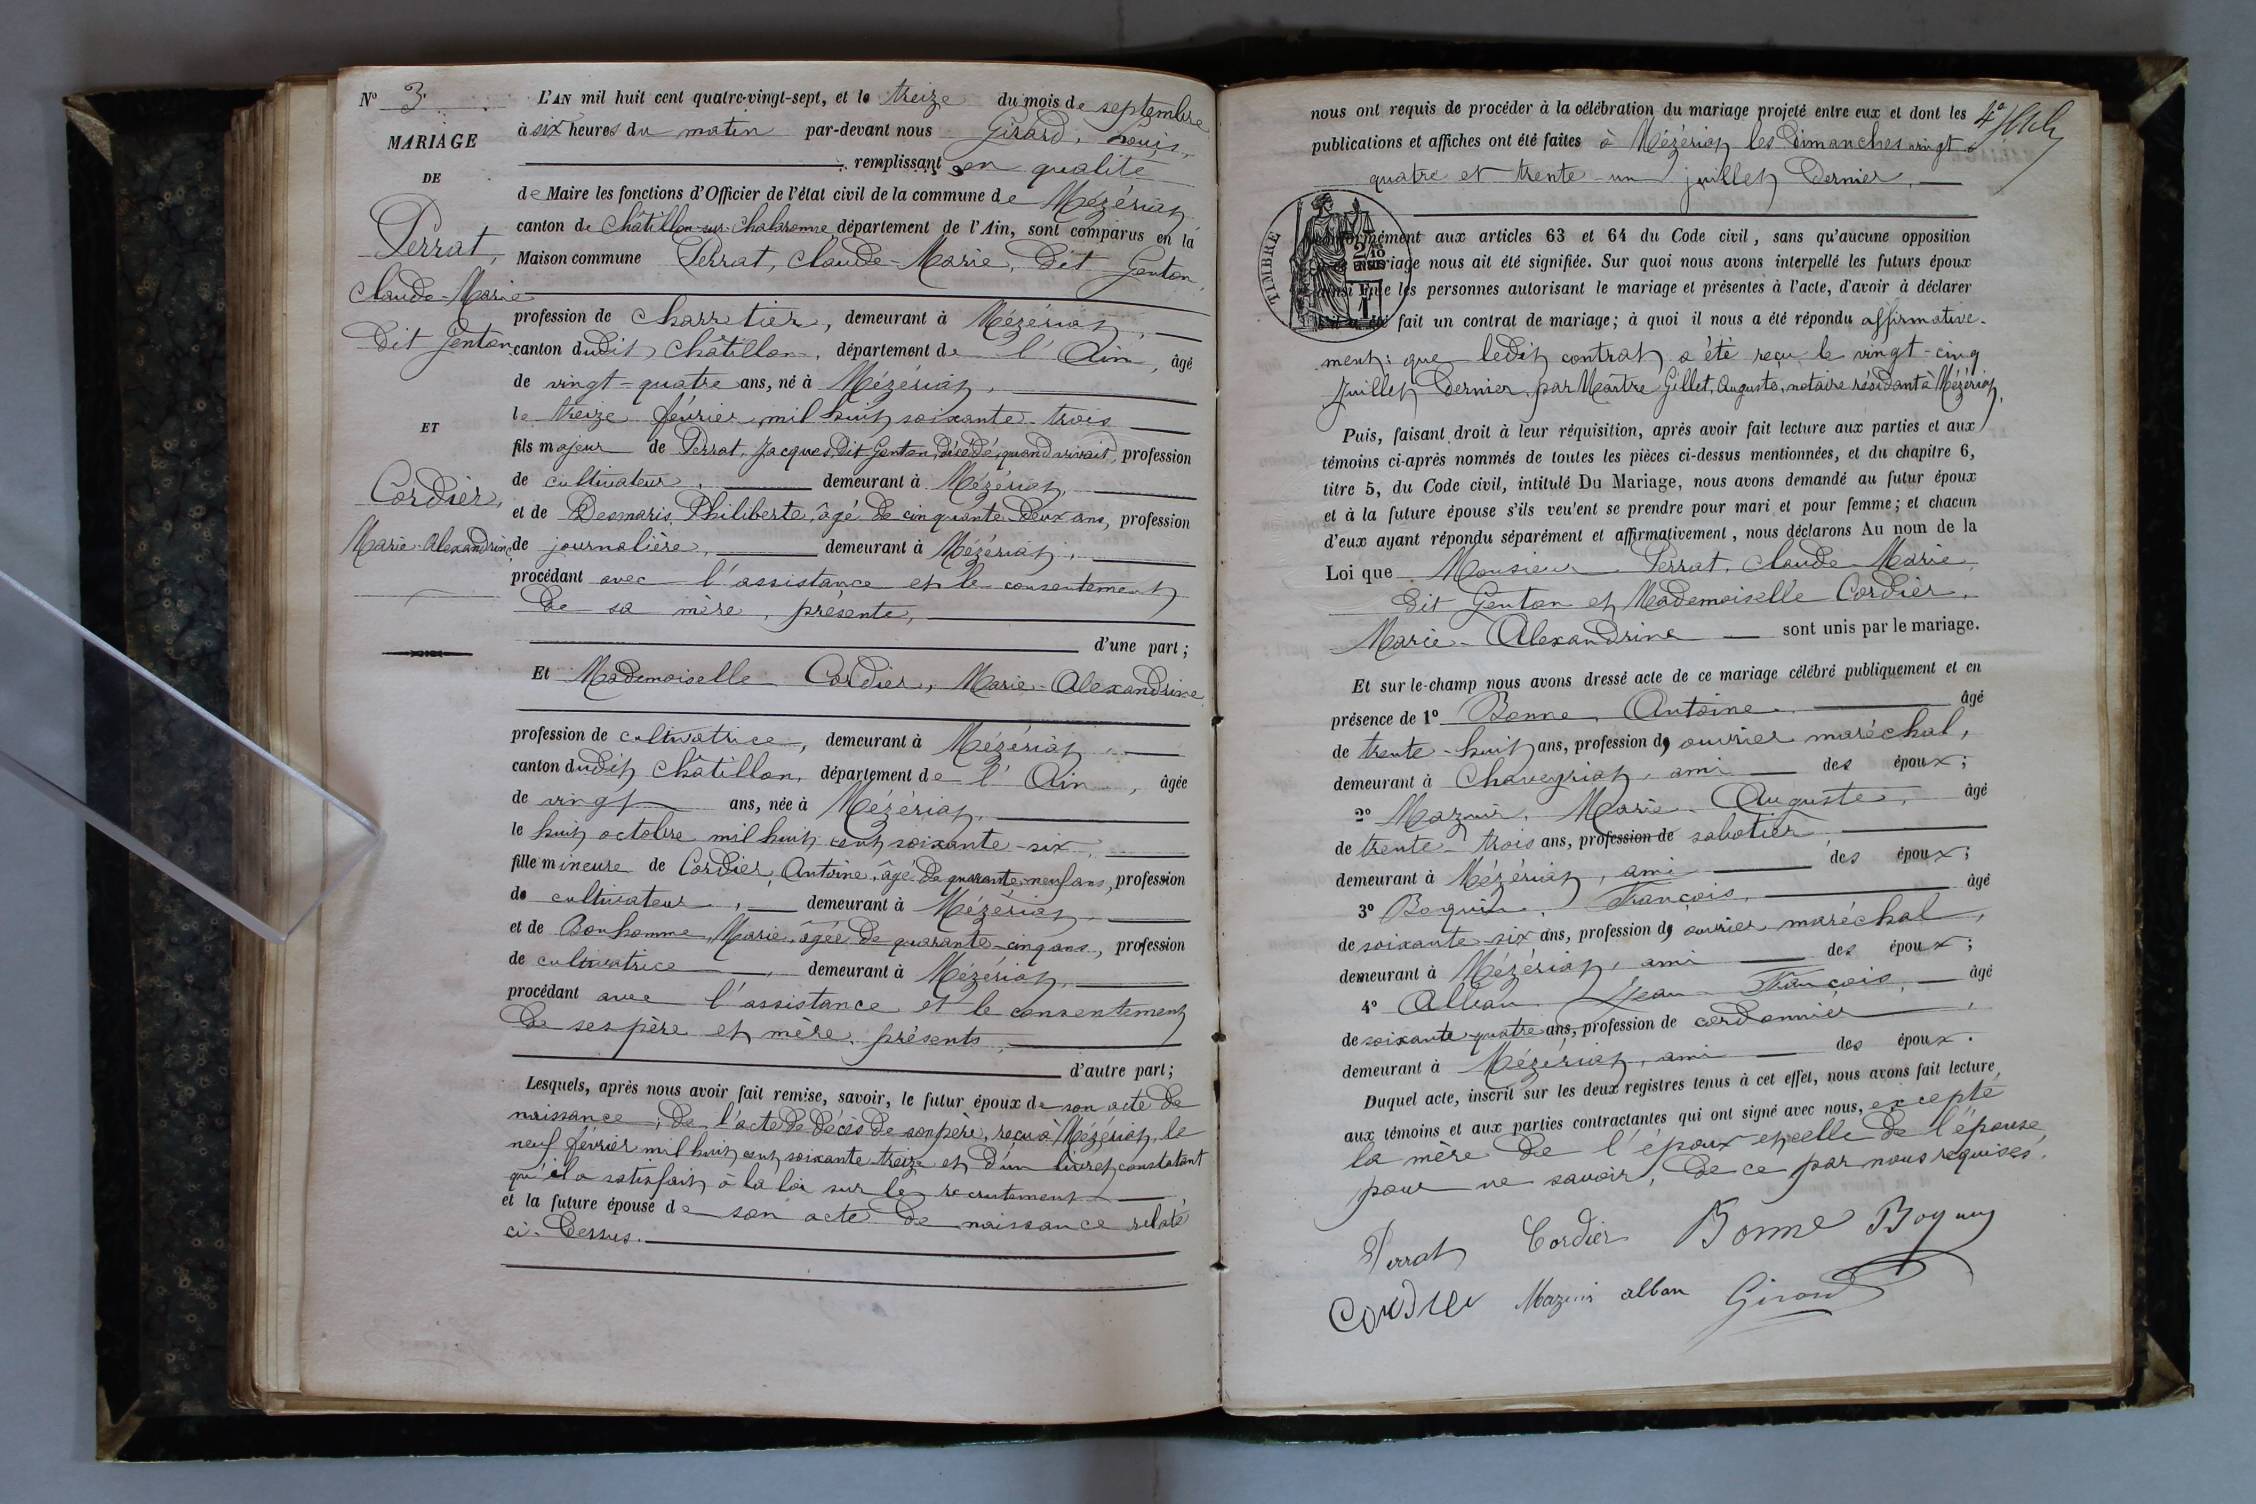 N° 3
MARIAGE
DE
Perrat,
Claude-Marie
dit Genton
ET
Cordier,
Marie-Alexandrine
L'AN mil huit cent quatre-vingt-sept, et le treize du mois de septembre
à six heures du matin par-devant nous Girard, Louis,
remplissant en qualité
de Maire les fonctions d'Officier de l'état civil de la commune de Mézériat
canton de Châtillon-sur-Chalaronne département de l'Ain, sont comparus en la
Maison commune Perrat, Claude-Marie, dit Genton,
profession de charretier, demeurant à Mézériat,
canton dudit Châtillon, département de l'Ain, âgé
de vingt-quatre ans, né à Mézériat,
le treize février mil huit soixante-trois
fils majeur de Perrat, Jacques, dit Genton, décédé, quand vivait, profession
de cultivateur, demeurant à Mézériat,
et de Desmaris, Philiberte, âgé de cinquante-deux ans, profession
de journalière, demeurant à Mézériat,
procédant avec l'assistance et le consentement
de sa mère, présente,
d'une part;
Et Mademoiselle Cordier, Marie-Alexandrine
profession de cultivatrice, demeurant à Mézériat,
canton dudit Châtillon, département de l'Ain, âgée
de vingt ans, née à Mézériat,
le huit octobre mil huit cent soixante-six,
fille mineure de Cordier, Antoine, âgé de quarante-neuf ans, profession
de cultivateur, demeurant à Mézériat,
et de Bonhomme, Marie, âgée de quarante-cinq ans, profession
de cultivatrice, demeurant à Mézériat,
procédant avec l'assistance et le consentement
de ses père et mère, présents,
d'autre part;
Lesquels, après nous avoir fait remise, savoir, le futur époux de son acte de
naissance, de l'acte de décès de son père, reçu à Mézériat, le
neuf février mil huit cent soixante-treize et d'un livret constatant
qu'il a satisfait à la loi sur le recrutement,
et la future épouse de son acte de naissance relaté
ci-dessus.
nous ont requis de procéder à la célébration du mariage projeté entre eux et dont les
publications et affiches ont été faites à Mézériat les dimanches vingt-
quatre et trente-un juillet dernier,
4e
TIMBRE
2/10
EN SUS
1
conformément aux articles 63 et 64 du Code civil, sans qu'aucune opposition
mariage nous ait été signifiée. Sur quoi nous avons interpellé les futurs époux
ainsi que les personnes autorisant le mariage et présentes à l'acte, d'avoir à déclarer
s'il a été fait un contrat de mariage; à quoi il nous a été répondu affirmative-
ment: que ledit contrat a été reçu le vingt-cinq
Juillet dernier, par Maître Gillet, Auguste, notaire résidant à Mézériat,
Puis, faisant droit à leur réquisition, après avoir fait lecture aux parties et aux
témoins ci-après nommés de toutes les pièces ci-dessus mentionnées, et du chapitre 6,
titre 5, du Code civil, intitulé Du Mariage, nous avons demandé au futur époux
et à la future épouse s'ils veulent se prendre pour mari et pour femme; et chacun
d'eux ayant répondu séparément et affirmativement, nous déclarons Au nom de la
Loi que Monsieur Perrat, Claude-Marie,
dit Genton et Mademoiselle Cordier,
Marie-Alexandrine sont unis par le mariage.
Et sur-le-champ nous avons dressé acte de ce mariage célébré publiquement et en
présence de 1° Bonne, Antoine, âgé
de trente-huit ans, profession d'ouvrier maréchal,
demeurant à Chaveyriat, ami des époux;
2° Mazuir, Marie-Auguste, âgé
de trente-trois ans, profession de sabotier
demeurant à Mézériat, ami des époux;
3° Boquin, François, âgé
de soixante-six ans, profession d'ouvrier maréchal,
demeurant à Mézériat, ami des époux;
4° Alban, Jean-François, âgé
de soixante-quatre ans, profession de cordonnier,
demeurant à Mézériat, ami des époux.
Duquel acte, inscrit sur les deux registres tenus à cet effet, nous avons fait lecture,
aux témoins et aux parties contractantes qui ont signé avec nous, excepté
la mère de l'époux et celle de l'épouse,
pour ne savoir, de ce par nous requises.
Perrat Cordier Bonne Boquin
Cordier Mazuir alban Girard